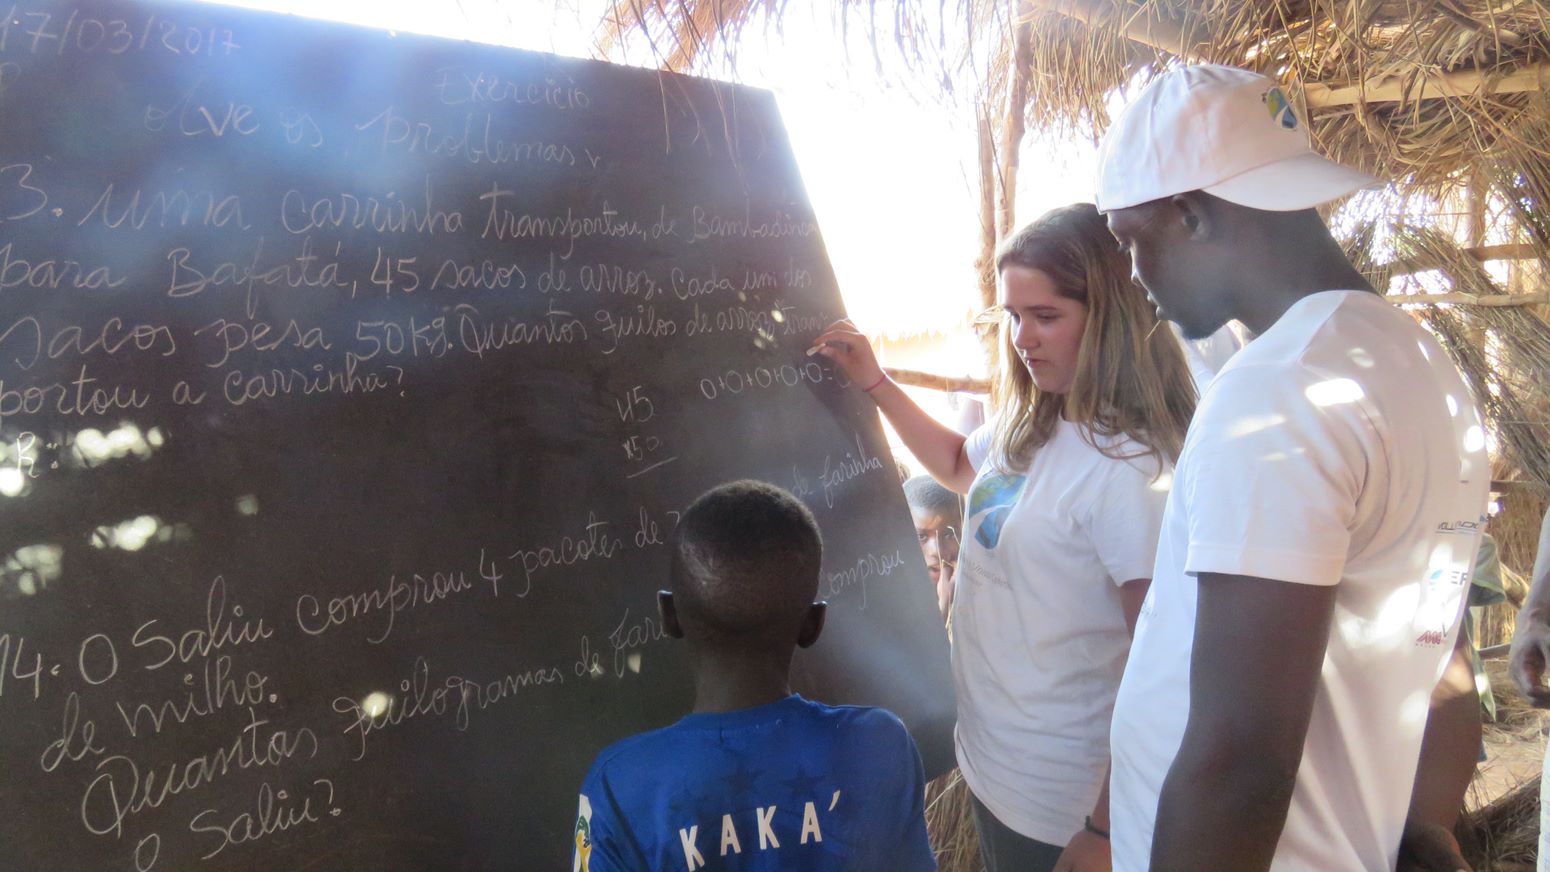 17/03/2017
Exercício
olve os problemas
3. uma carrinha transportou, de Bambadinca
para Bafatá, 45 sacos de arroz. Cada um dos
sacos pesa 50kg. Quantos quilos de arroz trans
portou a carrinha?
R:
45
x50
0+0+0+0+0=
14. O Saliu comprou 4 pacotes de de farinha
de milho.
Quantas quilogramas de comprou
o Saliu?
KAKA´